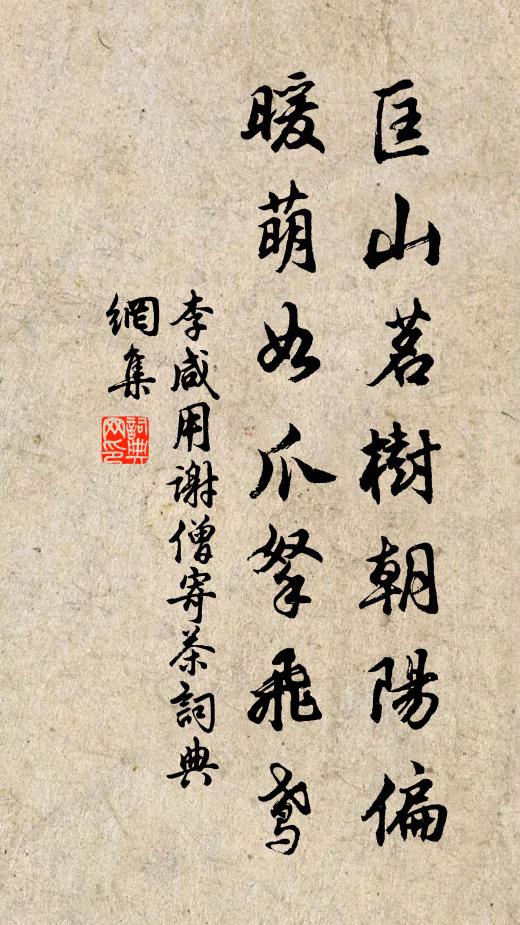 匡山茗樹朝陽偏
暖萌如爪拏飛鳶
李咸用謝僧寄茶詞典
網集
詞典网印